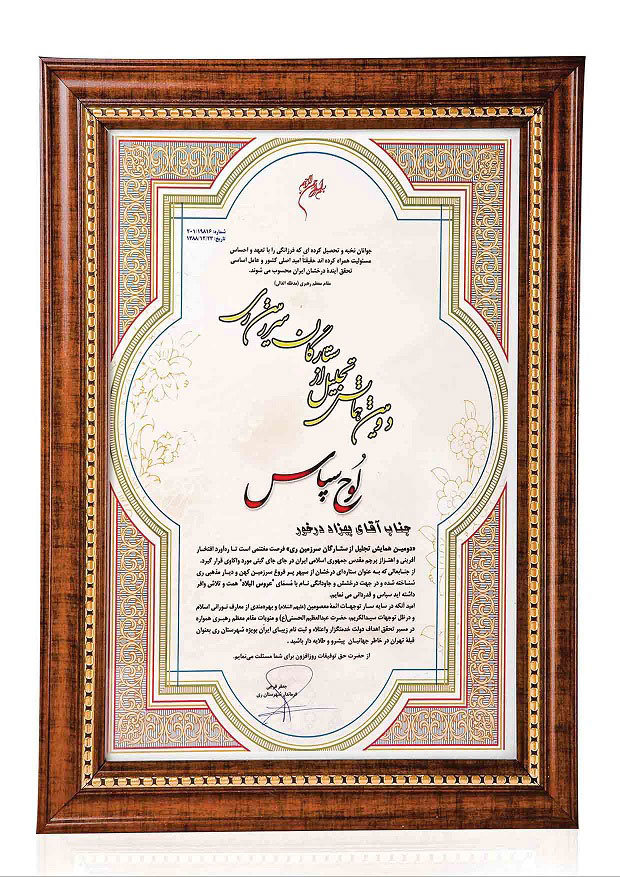 شماره: ۲۰۱/۱۹۸۱۶
تاریخ: ۱۳۸۸/۱۲/۲۳
جوانان نخبه و تحصیل کرده ای که فرزانگی را با تعهد و احساس
مسئولیت همراه کرده اند حقیقتاً امید اصلی کشور و عامل اساسی
تحقق آیندهٔ درخشان ایران محسوب می شوند.
مقام معظم رهبری (مدظله العالی)
دومین همایش تجلیل از ستارگان سرزمین ری
لوح سپاس
جناب آقای بهزاد درخور
«دومین همایش تجلیل از ستارگان سرزمین ری» فرصت مغتنمی است تا ره‌آورد افتخار
آفرینی و اهتزاز پرچم مقدس جمهوری اسلامی ایران در جای جای گیتی مورد واکاوی قرار گیرد.
از جنابعالی که به عنوان ستاره‌ای درخشان از سپهر پر فروغ سرزمین کهن و دیار مذهبی ری
شناخته شده و در جهت درخشش و جاودانگی نام با مُسمّای "عروس البلاد" همت و تلاش وافر
داشته اید سپاس و قدردانی می نمایم.
امید آنکه در سایه سار توجهات ائمهٔ معصومین (علیهم السلام) و بهره‌مندی از معارف نورانی اسلام
و در ظل توجهات سیدالکریم، حضرت عبدالعظیم الحسنی(ع) و منویات مقام معظم رهبری همواره
در مسیر تحقق اهداف دولت خدمتگزار و اعتلاء و ثبت نام زیبای ایران بویژه شهرستان ری بعنوان
قبلهٔ تهران در خاطر جهانیان پیشرو و طلایه دار باشید.
از حضرت حق توفیقات روزافزون برای شما مسئلت می‌نمایم.
جعفر
فرماندار شهرستان ری